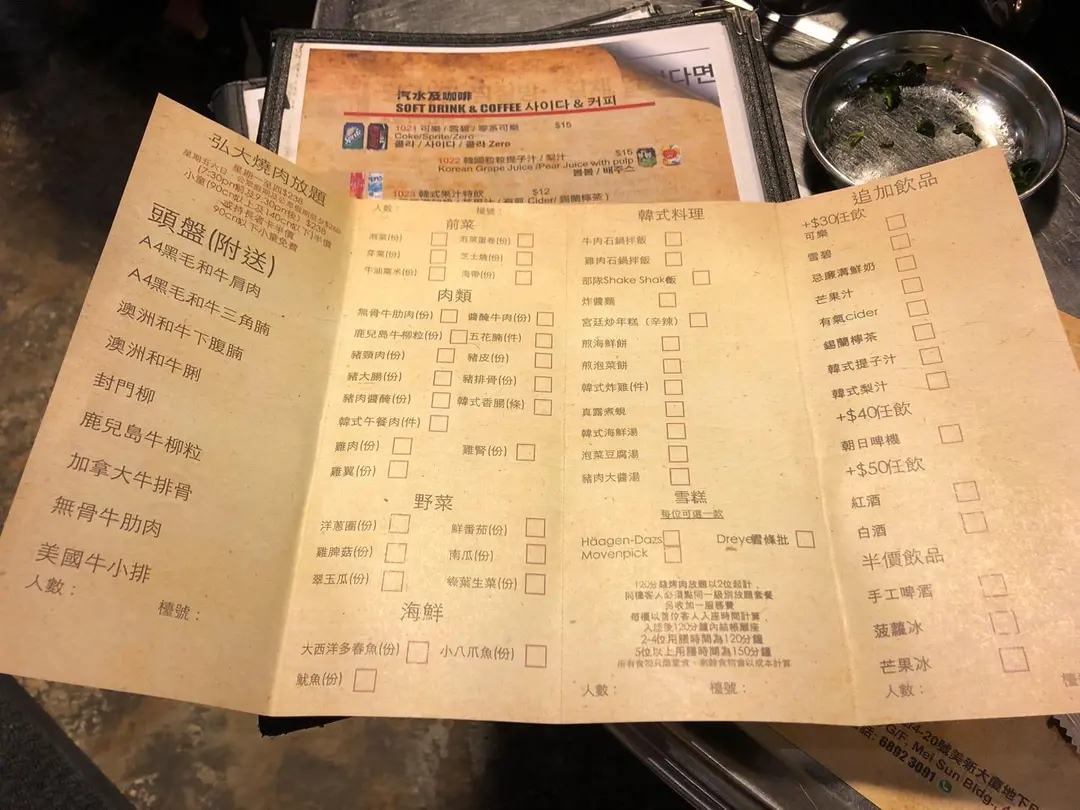 다면
汽水及咖啡
SOFT DRINK & COFFEE 사이다 & 커피
1021 可樂 / 雪碧 / 零系可樂 $15
Coke/Sprite/Zero
콜라 / 사이다 / 콜라 Zero
1022 韓國粒粒提子汁 / 梨汁 $15
Korean Grape Juice /Pear Juice with pulp
봉봉 / 배주스
1023 韓式果汁特飲 $12
弘大燒肉放題
星期一至四$238
(7:30pm前及9:30pm後) $238
小童(90cm以上至140cm以下)半價
90cm以下小童免費
頭盤(附送)
A4黑毛和牛肩肉
A4黑毛和牛三角腩
澳洲和牛下腹腩
澳洲和牛脷
封門柳
鹿兒島牛柳粒
加拿大牛排骨
無骨牛肋肉
美國牛小排
人數：
檯號：
人數： 檯號：
前菜
泡菜(份) 泡菜蛋卷(份)
芽菜(份) 芝士燒(份)
牛油粟米(份) 海帶(份)
肉類
無骨牛肋肉(份) 醬醃牛肉(份)
鹿兒島牛柳粒(份) 五花腩(件)
豬頸肉(份) 豬皮(份)
豬大腸(份) 豬排骨(份)
豬肉醬醃(份) 韓式香腸(條)
韓式午餐肉(件)
雞肉(份) 雞腎(份)
雞翼(份)
野菜
洋蔥圈(份) 鮮番茄(份)
雞脾菇(份) 南瓜(份)
翠玉瓜(份) 綠葉生菜(份)
海鮮
大西洋多春魚(份) 小八爪魚(份)
魷魚(份)
韓式料理
牛肉石鍋拌飯
雞肉石鍋拌飯
部隊Shake Shake飯
炸醬麵
宮廷炒年糕（辛辣）
煎海鮮餅
煎泡菜餅
韓式炸雞(件)
真露煮蜆
韓式海鮮湯
泡菜豆腐湯
豬肉大醬湯
雪糕
每位可選一款
Häagen-Dazs Dreyer雪條批
Movenpick
120分鐘烤肉放題以2位起計，
同檯客人必須點同一級別放題套餐
另收加一服務費
每檯以首位客人入座時間計算，
入座後120分鐘內結帳離座
2-4位用膳時間為120分鐘
5位以上用膳時間為150分鐘
所有食物只限堂食，剩餘食物會以成本計算
人數： 檯號：
追加飲品
+$30任飲
可樂
雪碧
忌廉溝鮮奶
芒果汁
有氣cider
錫蘭檸茶
韓式提子汁
韓式梨汁
+$40任飲
朝日啤機
+$50任飲
紅酒
白酒
半價飲品
手工啤酒
菠蘿冰
芒果冰
人數：
4-20號美新大廈地下
G/F, Mei Sun Bldg.,
6892 3091